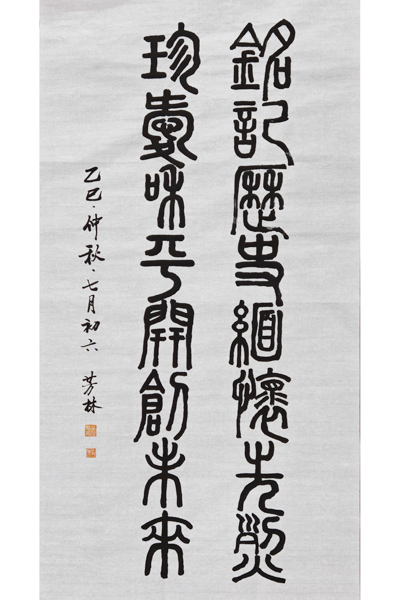 銘記歷史緬懷先烈
珍愛和平開創未來
乙巳·仲秋·七月初六 芳林